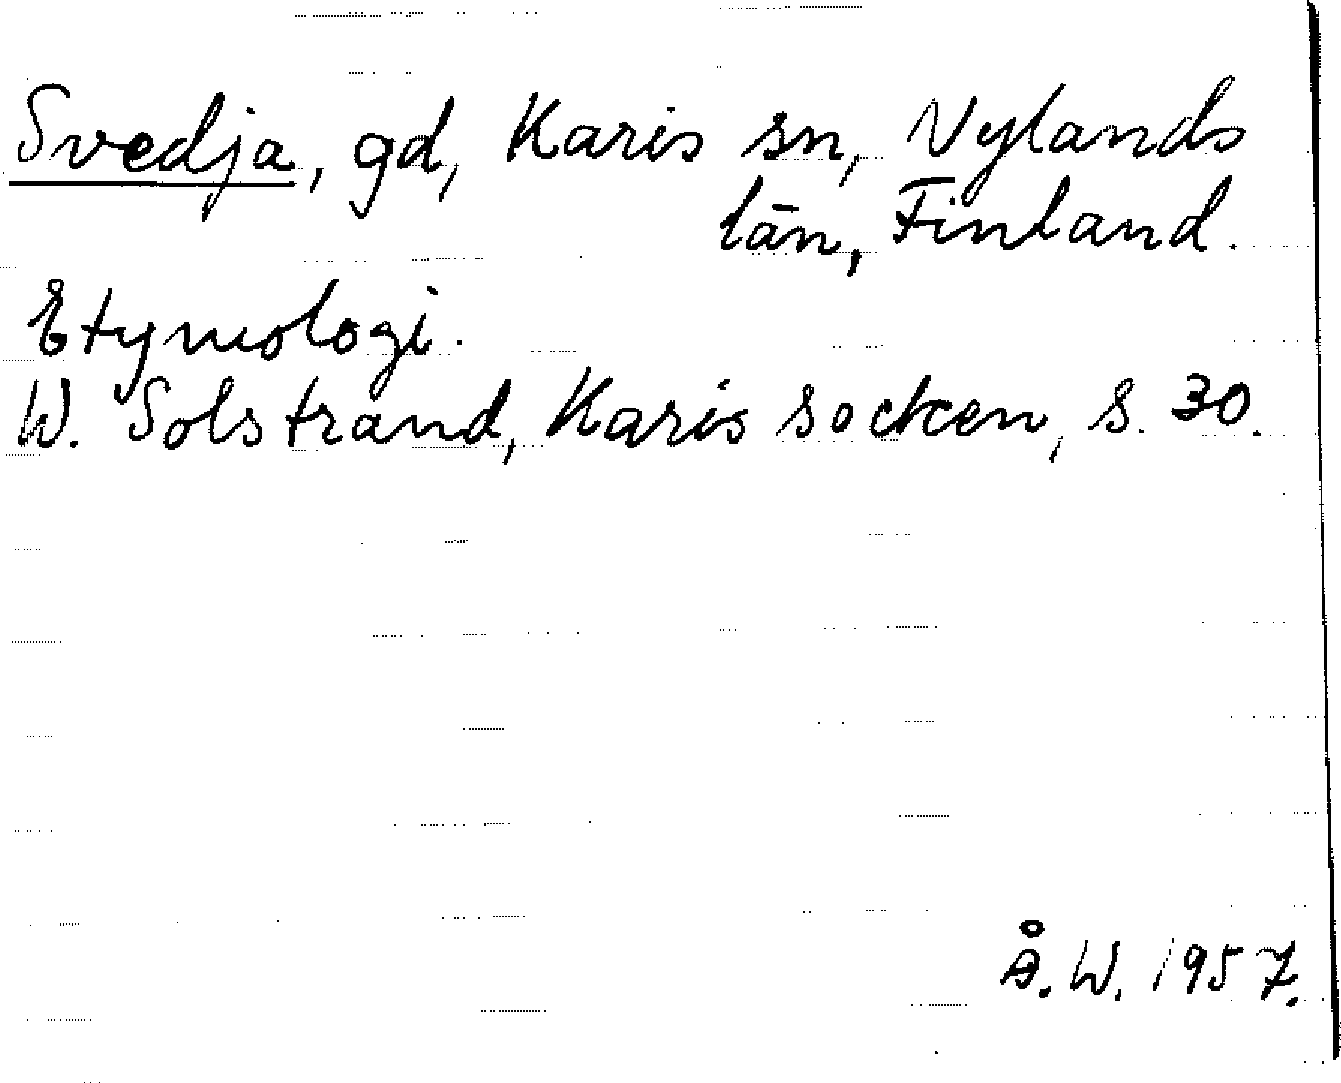 Svedja, gd, Karis sn, Nylands
län, Finland.
Etymologi.
W. Solstrand, Karis socken, s. 30.
Å. W. 1957.